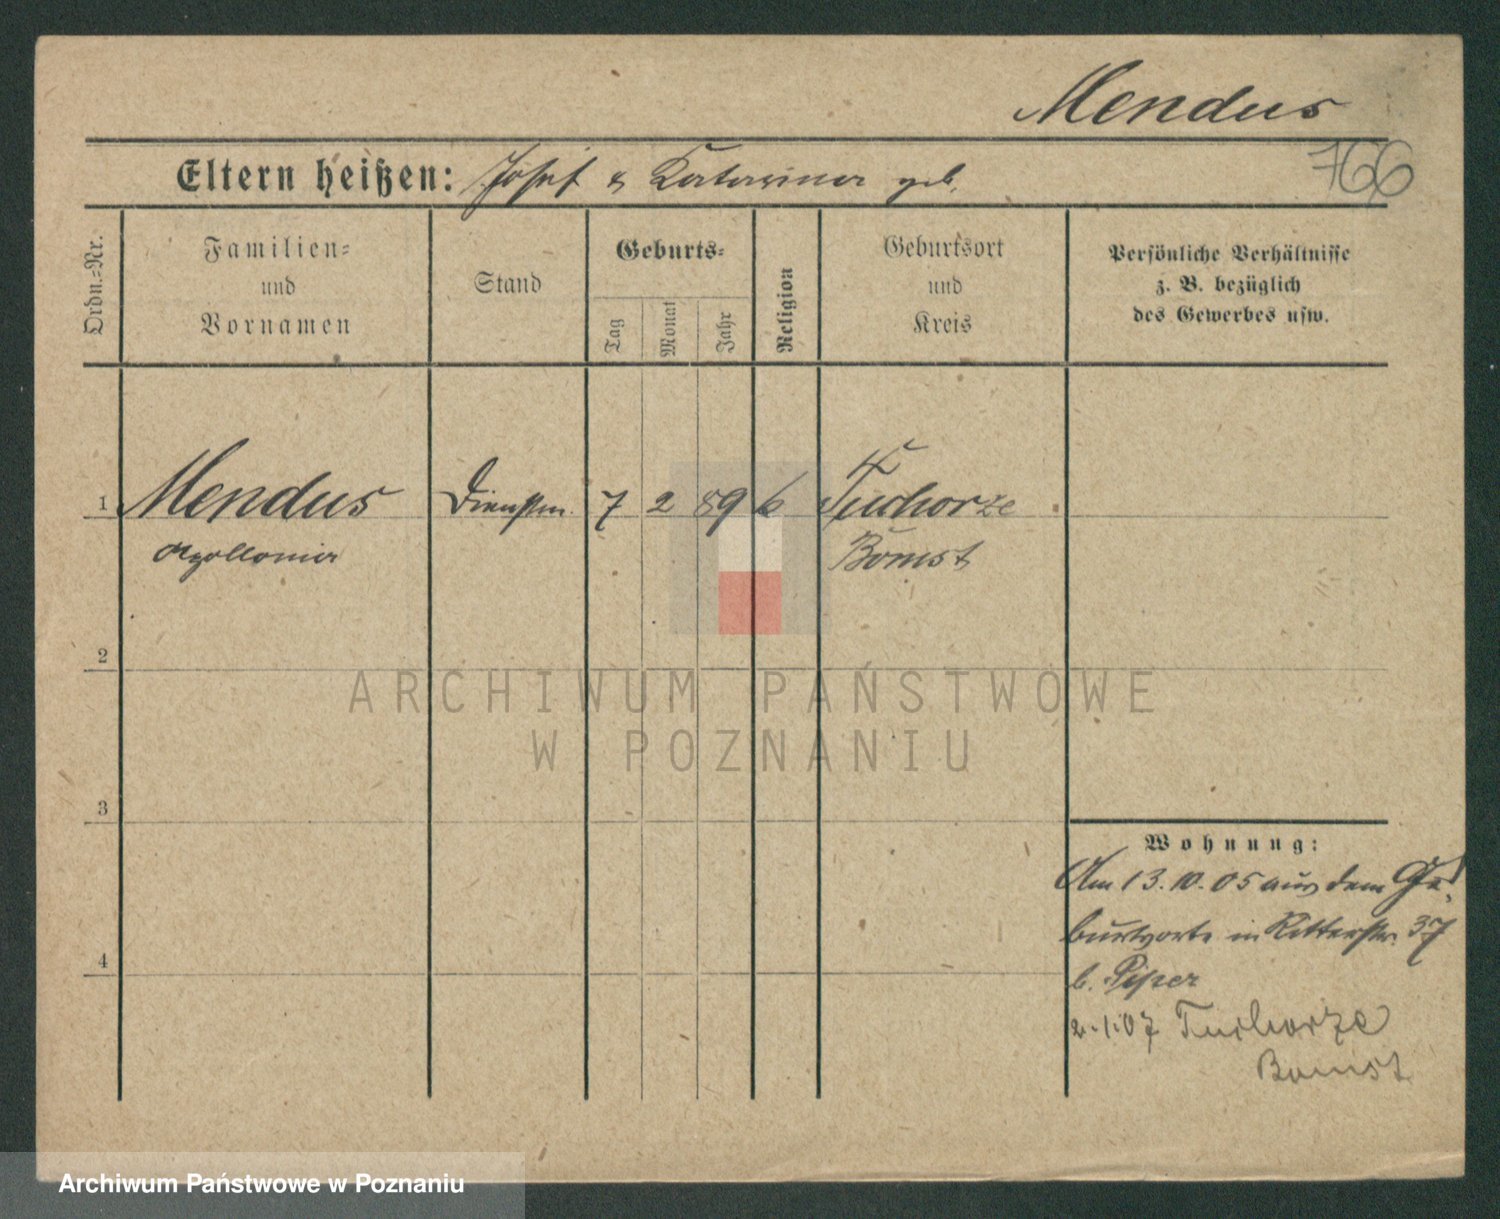 Mendus
766
Eltern heißen: Josef & Katarina geb.
Ordn.-Nr.
Familien-
und
Vornamen
Stand
Geburts-
Tag
Monat
Jahr
Religion
Geburtsort
und
Kreis
Persönliche Verhältnisse
z. B. bezüglich
des Gewerbes usw.
1 Mendus Dienstm. 7 2 89 k Tuchorze
Apollonia Bomst
2
ARCHIWUM PAŃSTWOWE
W POZNANIU
3
Wohnung:
Am 13.10.05 aus dem Ge-
burtsorte in Ritterstr. 37
4
b. Piper
2.1.07 Tuchorze
Bomst
Archiwum Państwowe w Poznaniu